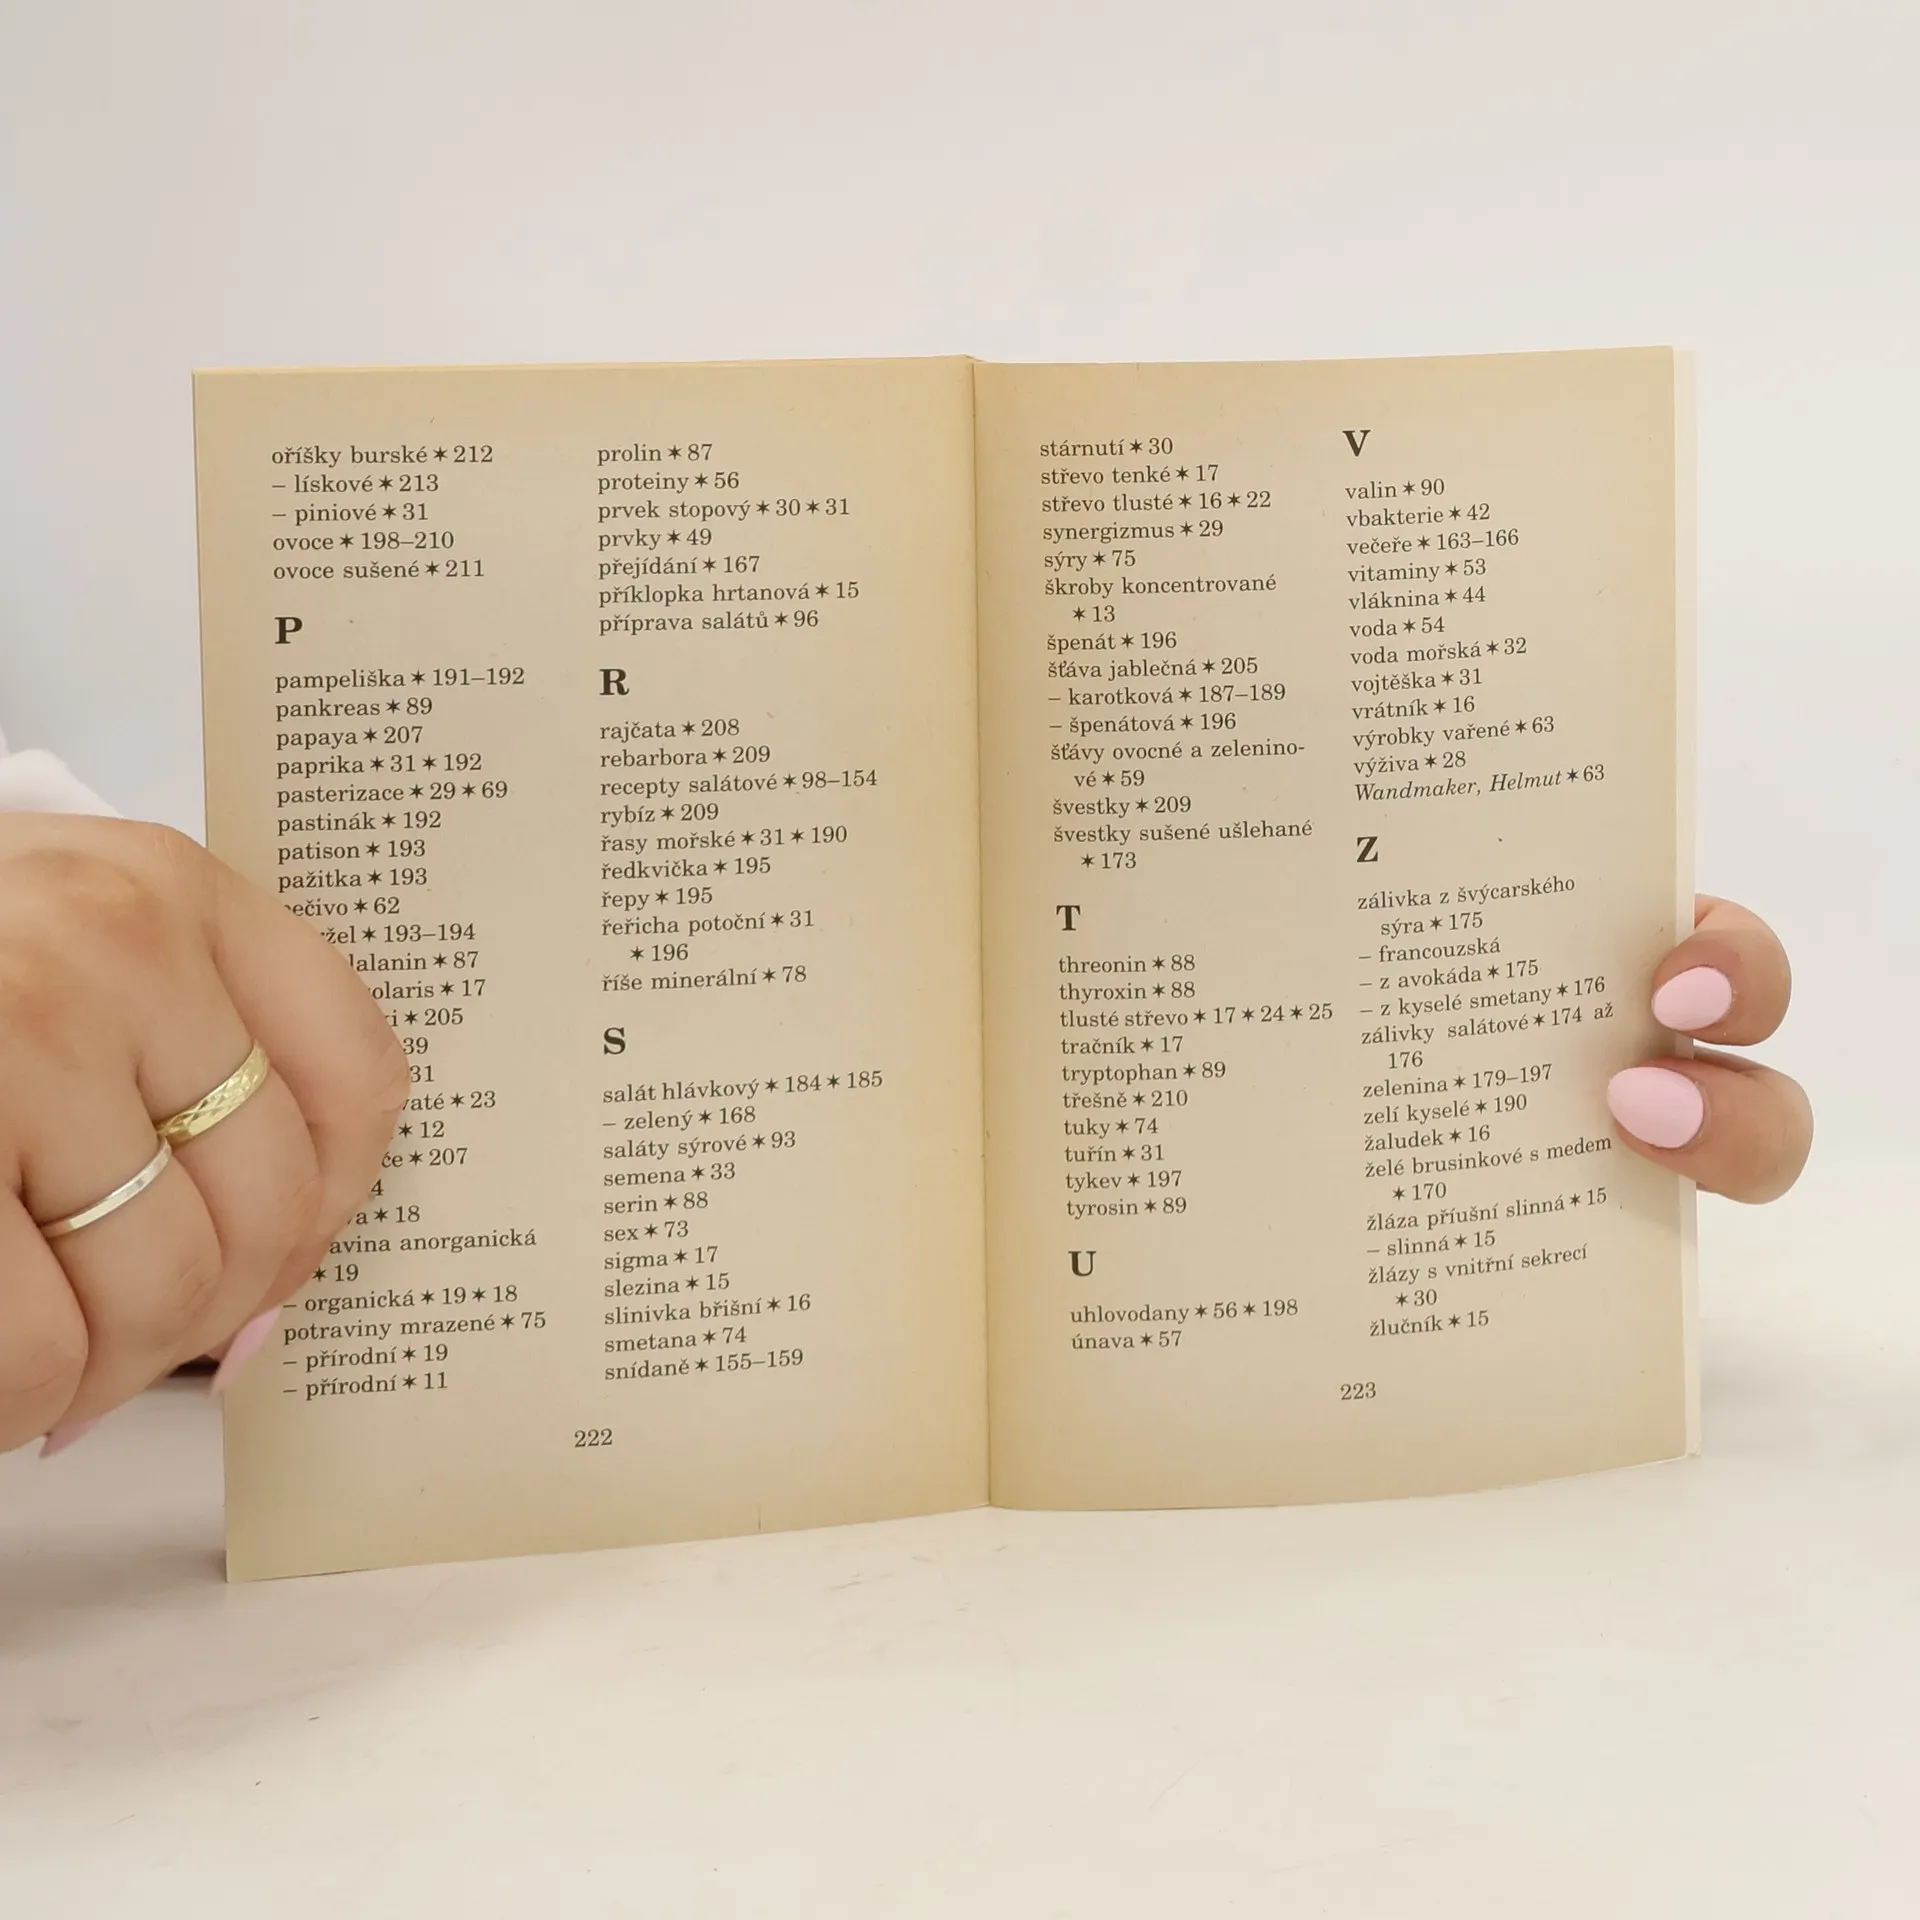 oříšky burské ✶ 212
– lískové ✶ 213
– piniové ✶ 31
ovoce ✶ 198–210
ovoce sušené ✶ 211
P
pampeliška ✶ 191–192
pankreas ✶ 89
papaya ✶ 207
paprika ✶ 31 ✶ 192
pasterizace ✶ 29 ✶ 69
pastinák ✶ 192
patison ✶ 193
pažitka ✶ 193
✶ 62
✶ 193–194
✶ 87
✶ 17
✶ 205
39
31
✶ 23
✶ 12
✶ 207
4
✶ 18
anorganická
✶ 19
– organická ✶ 19 ✶ 18
potraviny mrazené ✶ 75
– přírodní ✶ 19
– přírodní ✶ 11
prolin ✶ 87
proteiny ✶ 56
prvek stopový ✶ 30 ✶ 31
prvky ✶ 49
přejídání ✶ 167
příklopka hrtanová ✶ 15
příprava salátů ✶ 96
R
rajčata ✶ 208
rebarbora ✶ 209
recepty salátové ✶ 98–154
rybíz ✶ 209
řasy mořské ✶ 31 ✶ 190
ředkvička ✶ 195
řepy ✶ 195
řeřicha potoční ✶ 31
✶ 196
říše minerální ✶ 78
S
salát hlávkový ✶ 184 ✶ 185
– zelený ✶ 168
saláty sýrové ✶ 93
semena ✶ 33
serin ✶ 88
sex ✶ 73
sigma ✶ 17
slezina ✶ 15
slinivka břišní ✶ 16
smetana ✶ 74
snídaně ✶ 155–159
222
stárnutí ✶ 30
střevo tenké ✶ 17
střevo tlusté ✶ 16 ✶ 22
synergizmus ✶ 29
sýry ✶ 75
škroby koncentrované
✶ 13
špenát ✶ 196
šťáva jablečná ✶ 205
– karotková ✶ 187–189
– špenátová ✶ 196
šťávy ovocné a zelenino-
vé ✶ 59
švestky ✶ 209
švestky sušené ušlehané
✶ 173
T
threonin ✶ 88
thyroxin ✶ 88
tlusté střevo ✶ 17 ✶ 24 ✶ 25
tračník ✶ 17
tryptophan ✶ 89
třešně ✶ 210
tuky ✶ 74
tuřín ✶ 31
tykev ✶ 197
tyrosin ✶ 89
U
uhlovodany ✶ 56 ✶ 198
únava ✶ 57
V
valin ✶ 90
vbakterie ✶ 42
večeře ✶ 163–166
vitaminy ✶ 53
vláknina ✶ 44
voda ✶ 54
voda mořská ✶ 32
vojtěška ✶ 31
vrátník ✶ 16
výrobky vařené ✶ 63
výživa ✶ 28
Wandmaker, Helmut ✶ 63
Z
zálivka z švýcarského
sýra ✶ 175
– francouzská
– z avokáda ✶ 175
– z kyselé smetany ✶ 176
zálivky salátové ✶ 174 až
176
zelenina ✶ 179–197
zelí kyselé ✶ 190
žaludek ✶ 16
želé brusinkové s medem
✶ 170
žláza příušní slinná ✶ 15
– slinná ✶ 15
žlázy s vnitřní sekrecí
✶ 30
žlučník ✶ 15
223